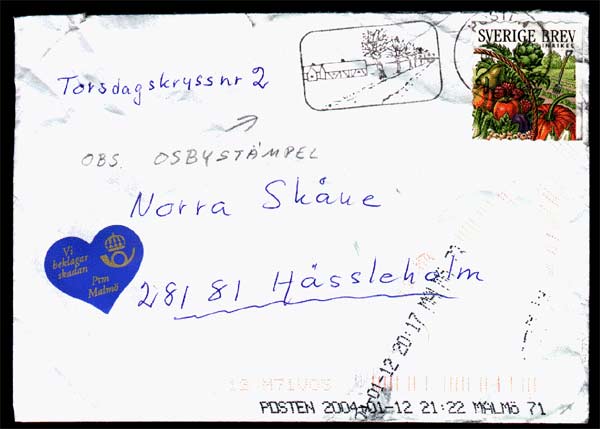 POSTEN
SVERIGE BREV
INRIKES
Torsdagskryss nr 2
OBS. OSBYSTÄMPEL
Norra Skåne
281 81 Hässleholm
Vi
beklagar
skadan
Ptm
Malmö
2004-01-12 20:17 MALMÖ 71
12 M71VOS
POSTEN 2004-01-12 21:22 MALMÖ 71